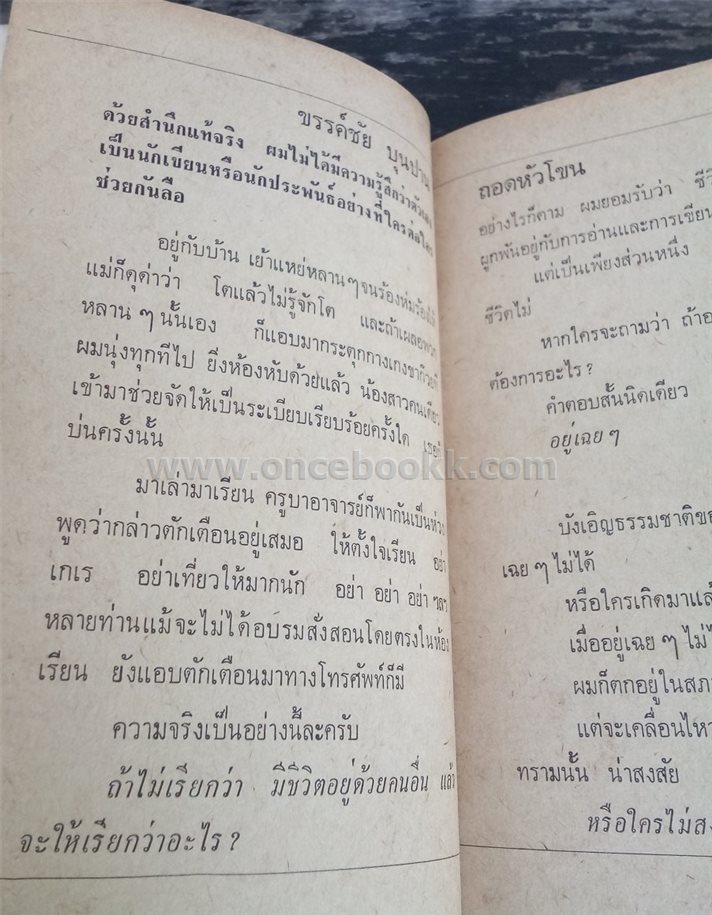 ขรรค์ชัย บุนปาน
ด้วยสำนึกแท้จริง ผมไม่ได้มีความรู้สึกว่าตัวเอง
เป็นนักเขียนหรือนักประพันธ์อย่างที่ใครต่อใคร
ช่วยกันลือ
อยู่กับบ้าน เย้าแหย่หลานๆจนร้องห่มร้องไห้
แม่ก็ดุด่าว่า โตแล้วไม่รู้จักโต และถ้าเผลอพวก
หลานๆนั้นเอง ก็แอบมากระตุกกางเกงขาก๊วยที่
ผมนุ่งทุกทีไป ยิ่งห้องหับด้วยแล้ว น้องสาวคนเดียว
เข้ามาช่วยจัดให้เป็นระเบียบเรียบร้อยครั้งใด
บ่นครั้งนั้น
มาเล่ามาเรียน ครูบาอาจารย์ก็พากันเป็นห่วง
พูดว่ากล่าวตักเตือนอยู่เสมอ ให้ตั้งใจเรียน อย่า
เกเร อย่าเที่ยวให้มากนัก อย่า อย่า อย่า ฯลฯ
หลายท่านแม้จะไม่ได้อบรมสั่งสอนโดยตรงในห้อง
เรียน ยังแอบตักเตือนมาทางโทรศัพท์ก็มี
ความจริงเป็นอย่างนี้ละครับ
ถ้าไม่เรียกว่า มีชีวิตอยู่ด้วยคนอื่น แล้ว
จะให้เรียกว่าอะไร?
www.oncebookk.com
ถอดหัวโขน
อย่างไรก็ตาม ผมยอมรับว่า
ผูกพันอยู่กับการอ่านและการเขียน
แต่เป็นเพียงส่วนหนึ่ง
ชีวิตไม่
หากใครจะถามว่า
ต้องการอะไร?
คำตอบสั้นนิดเดียว
อยู่เฉยๆ
บังเอิญธรรมชาติ
เฉยๆไม่ได้
หรือใครเกิดมา
เมื่ออยู่เฉยๆ
ผมก็ตกอยู่ใน
แต่จะเคลื่อน
ทรามนั้น น่าสงสัย
หรือใครไม่